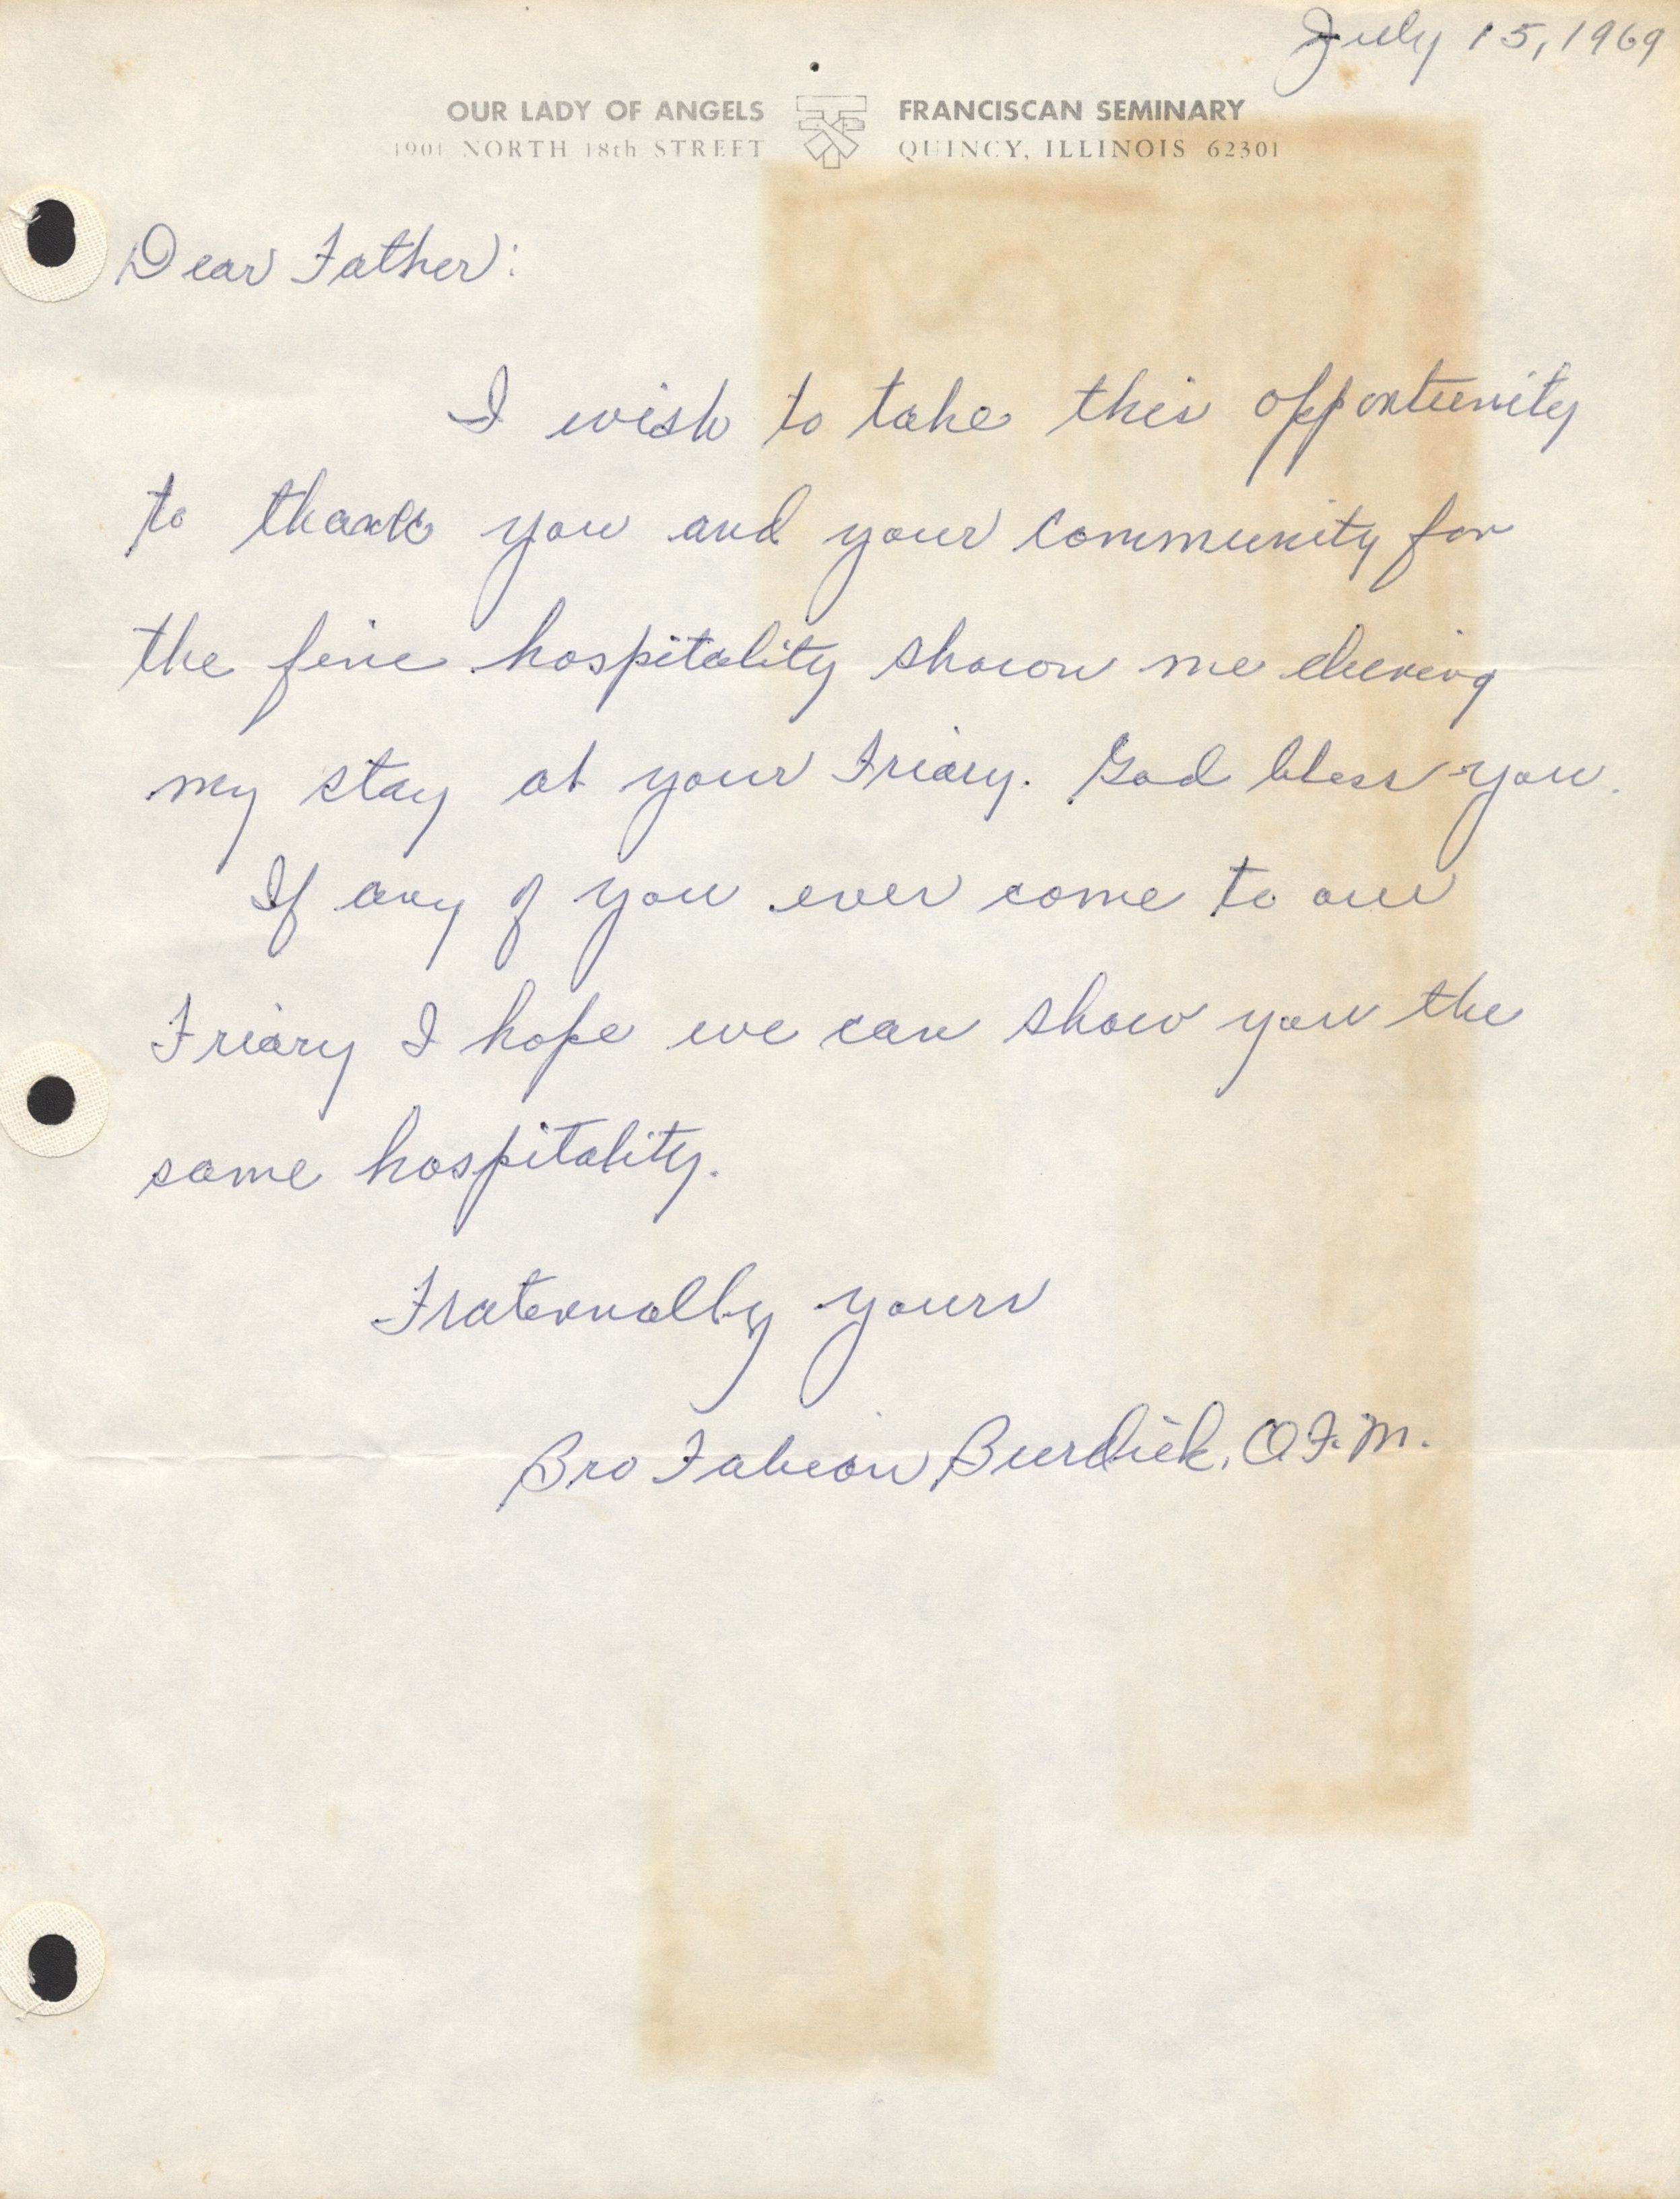 July 15, 1969
OUR LADY OF ANGELS FRANCISCAN SEMINARY
1901 NORTH 18th STREET QUINCY, ILLINOIS 62301
Dear Father:
I wish to take this opportunity
to thank you and your community for
the fine hospitality shown me during
my stay at your Friary. God bless you.
If any of you ever come to our
Friary I hope we can show you the
same hospitality.
Fraternally yours
Bro Fabian Burdick, O.F.M.